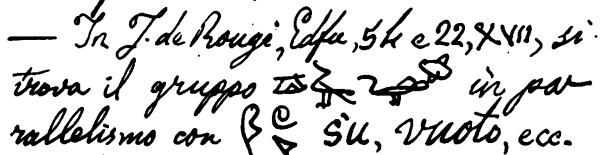 — In J. de Rougé, Edfu, 54 e 22, XVII, si
trova il gruppo in par
rallelismo con šu, vuoto, ecc.